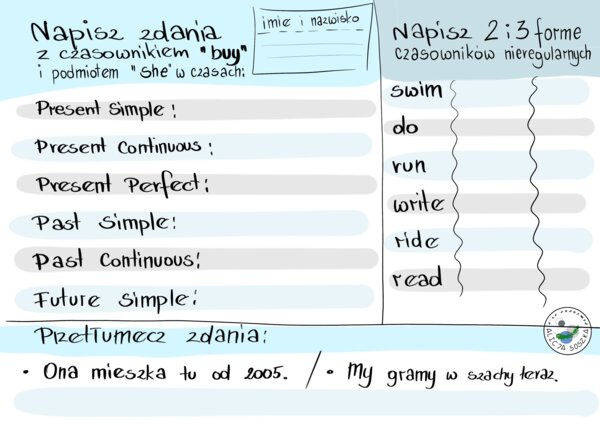 Napisz zdania
z czasownikiem "buy"
i podmiotem "she" w czasach:
imię i nazwisko
Present Simple:
Present Continuous:
Present Perfect:
Past Simple:
Past Continuous:
Future Simple:
Napisz 2 i 3 formę
czasowników nieregularnych
swim
do
run
write
ride
read
Przetłumecz zdania:
• Ona mieszka tu od 2005. / • My gramy w szachy teraz.
ALICJA SOSZKA